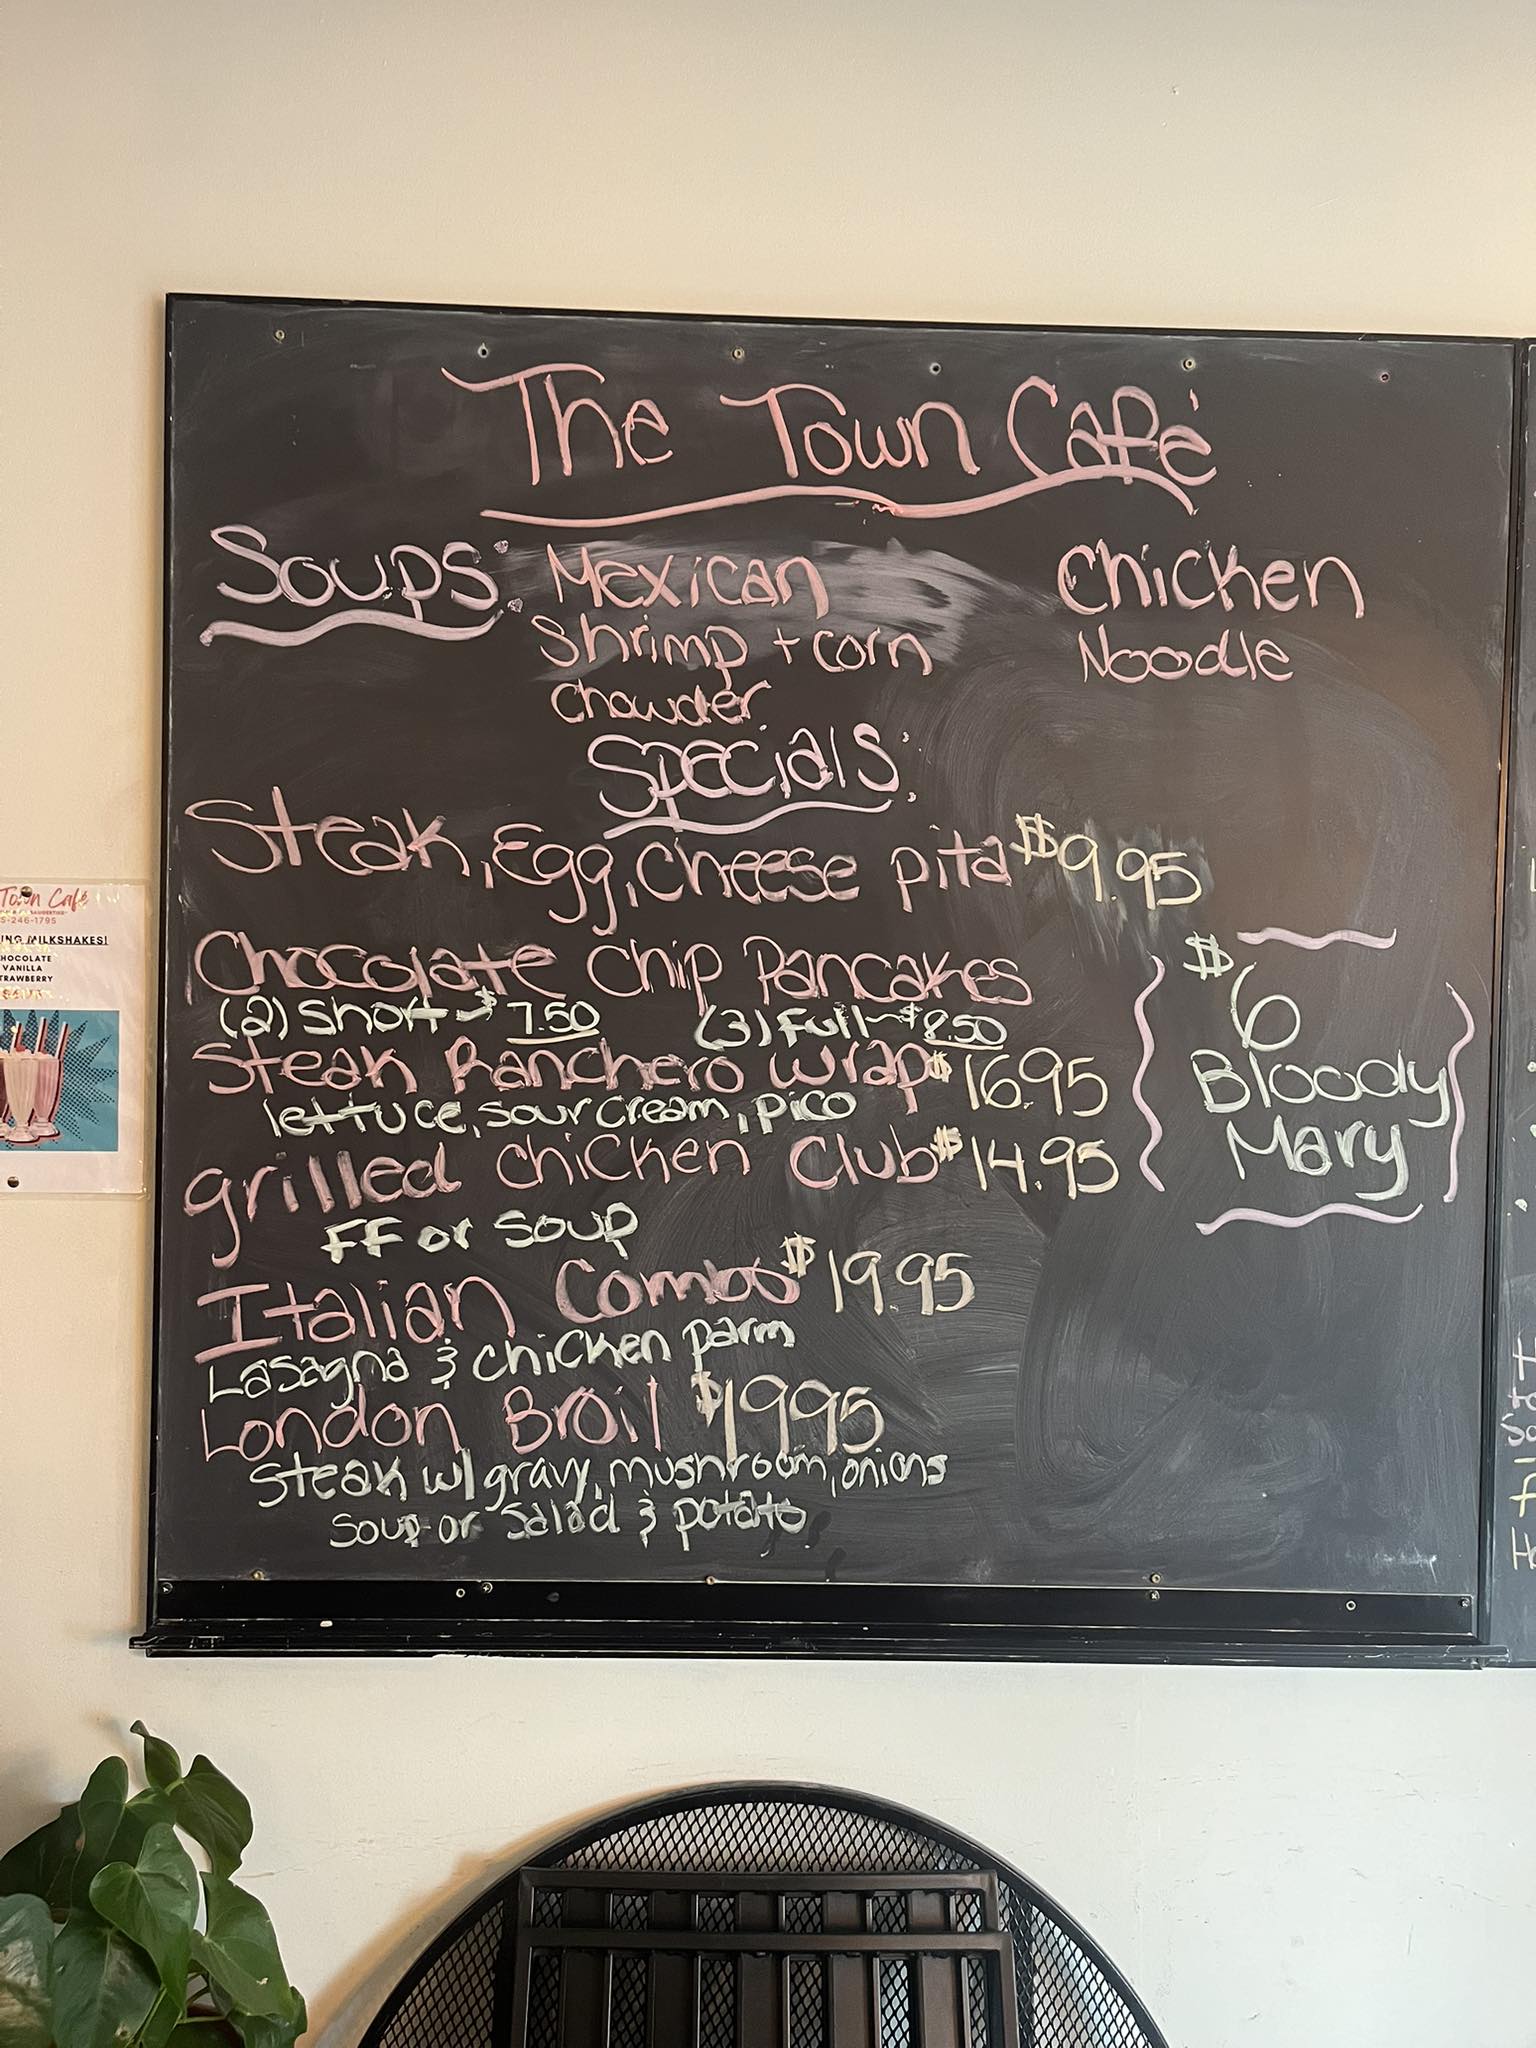 The Town Café
Soups: Mexican
Shrimp + corn
Chowder
Chicken
Noodle
Specials:
Steak, Egg, Cheese pita $9.95
Chocolate Chip Pancakes
(2) Short - $7.50 (3) Full - $8.50
Steak Ranchero Wrap $16.95
lettuce, sour cream, pico
grilled Chicken Club $14.95
FF or Soup
Italian Combo $19.95
Lasagna & chicken parm
London Broil $19.95
Steak w/ gravy, mushroom, onions
Soup or Salad & potato
$6
Bloody
Mary
Town Café
5-246-1795
MILKSHAKES!
HOCOLATE
VANILLA
TRAWBERRY